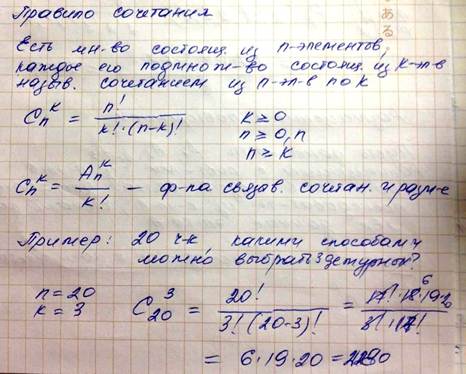 Правило сочетания
Есть мн-во состоящ. из n-элементов,
каждое его подмнож-во состоящ. из k-эл-в
назыв. сочетанием из n-эл-в по k
C_n^k = n! / k!·(n-k)!
k ≥ 0
n ≥ 0, n
n ≥ k
C_n^k = A_n^k / k! — ф-ла связав. сочетан. и разм-е
Пример: 20 ч-к, какими способами
можно выбрать 3 дежурног?
n = 20
k = 3
C_20^3 = 20! / 3!·(20-3)! = 17!·18·19·20 / 3!·17!
6
= 6·19·20 = 2280